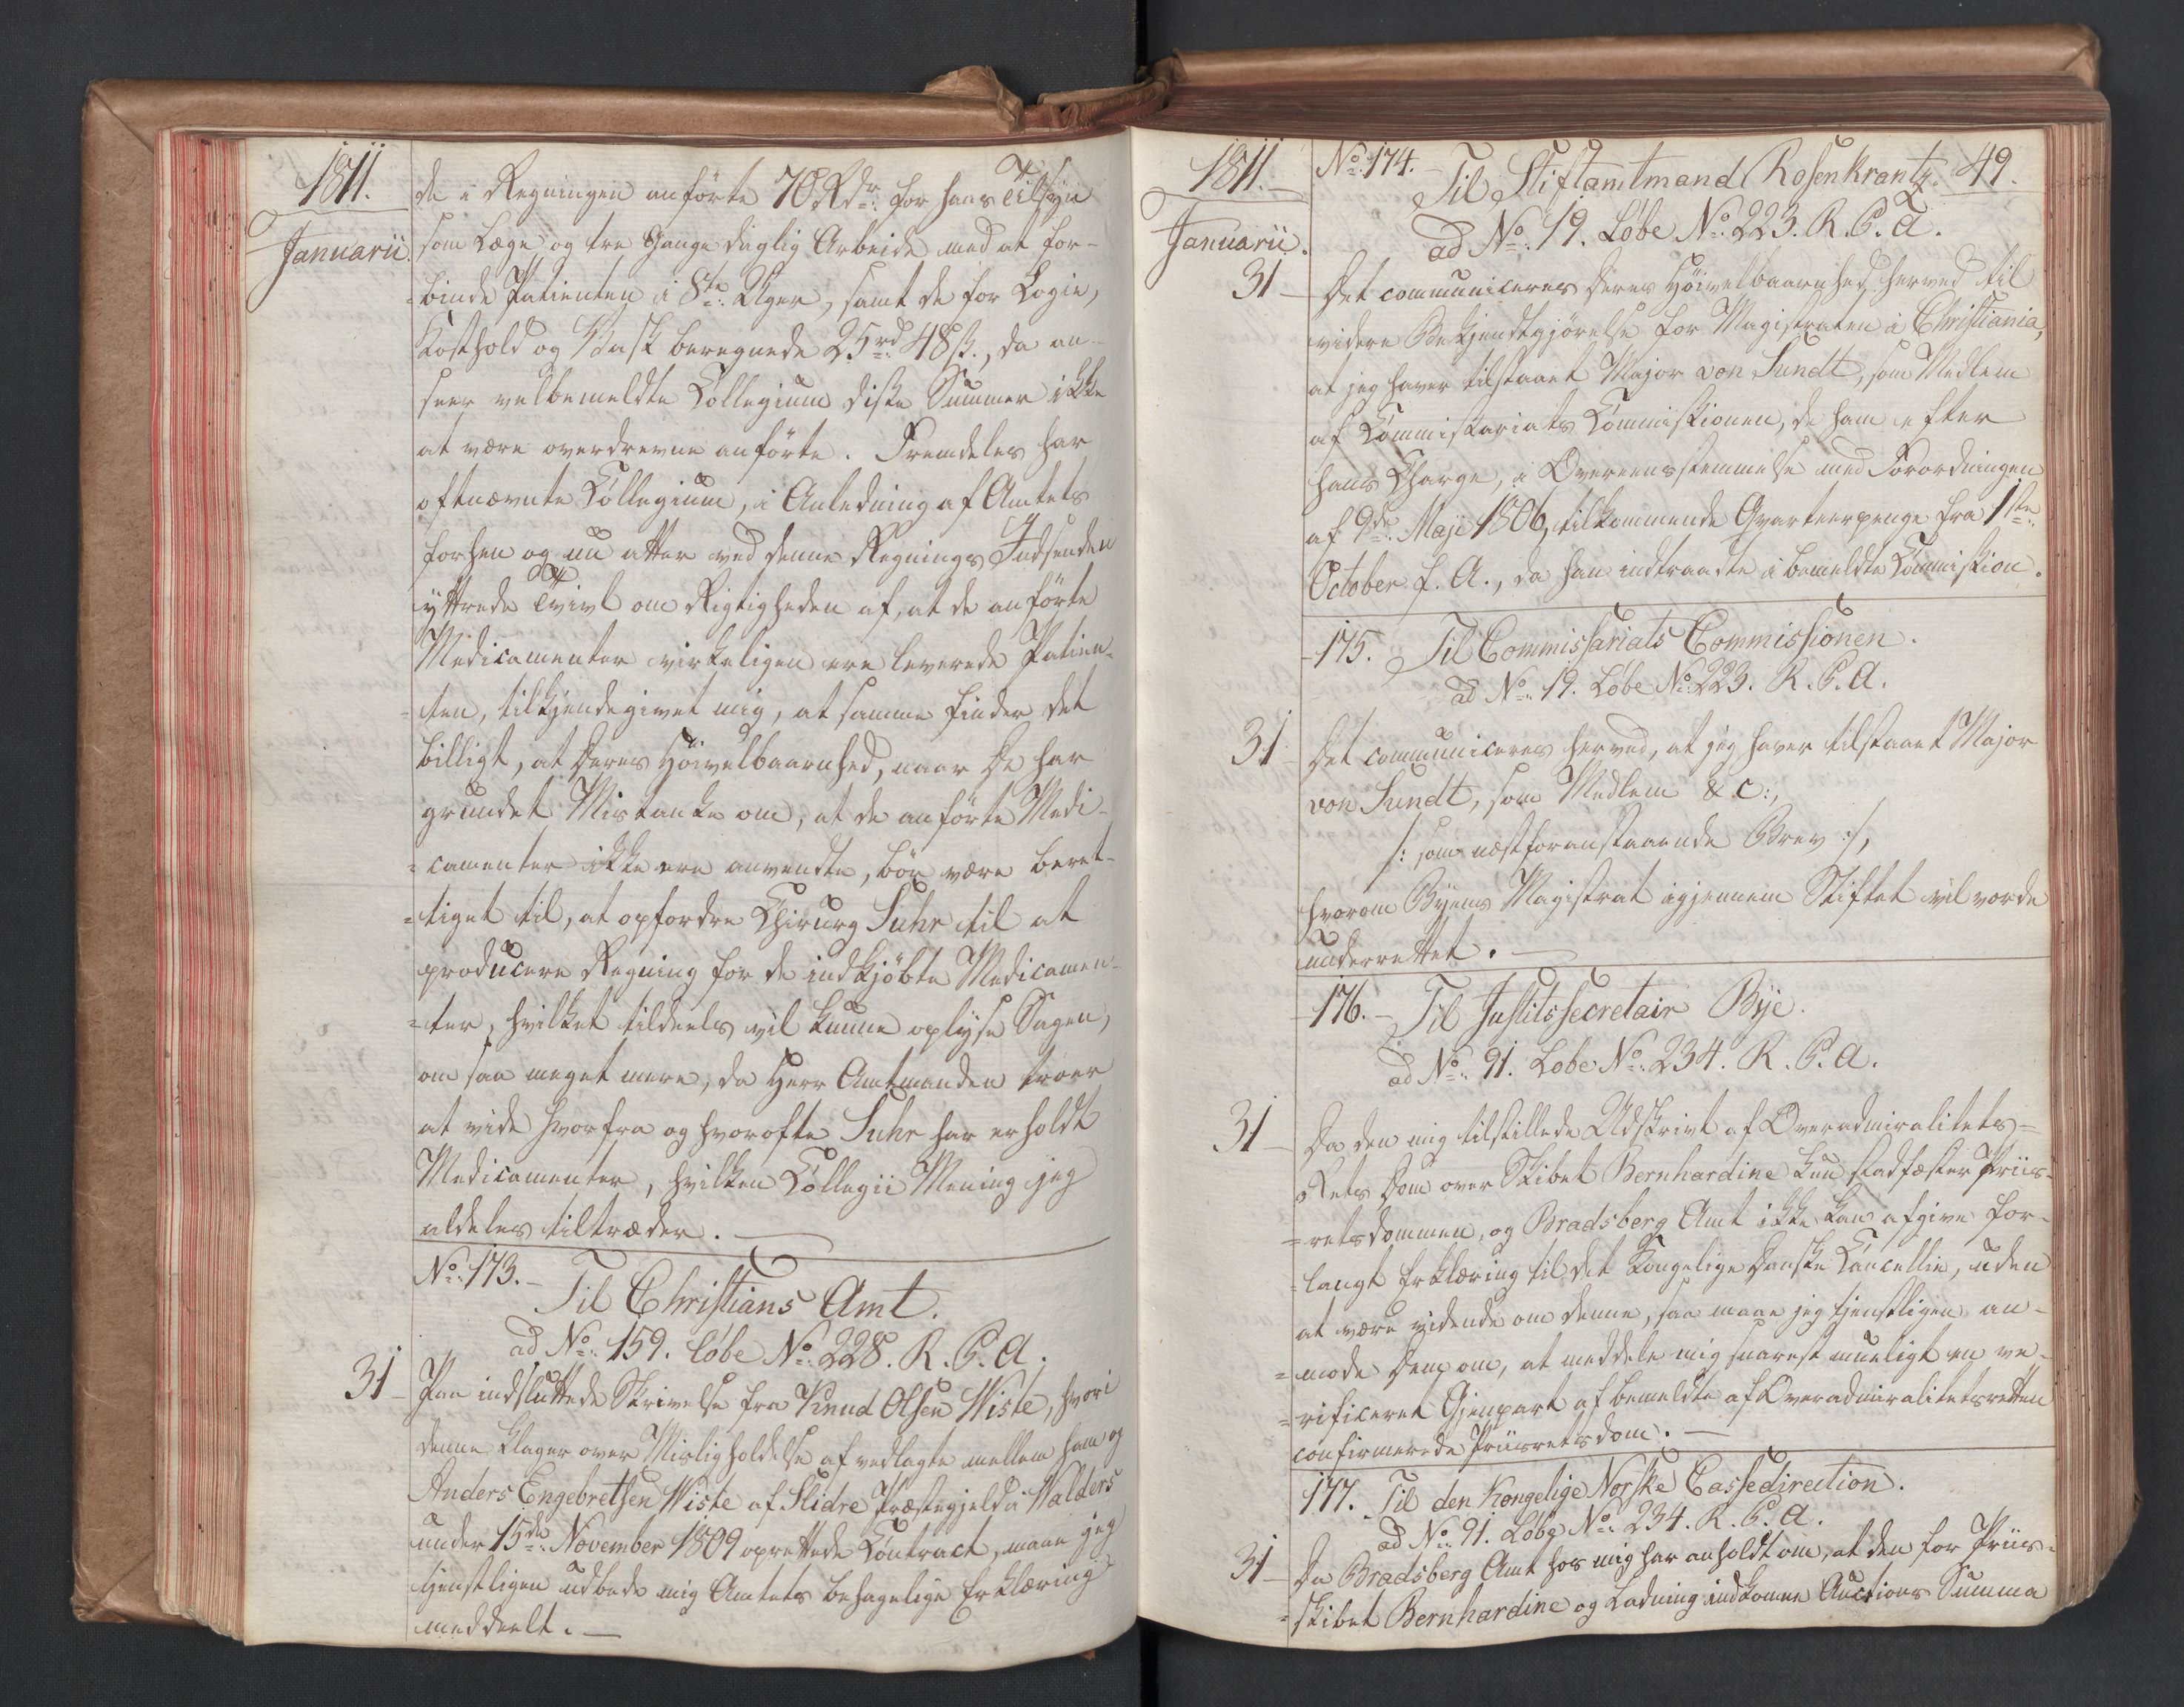 1811.
Januarii.
de i Regningen anförte 70 Rdr: for hans Tilsyn
som Læge og tre Gange daglig Arbeide med at for-
=binde Patienten i 8te: Uger, samt de for Logie,
Kosthold og Vask beregnede 25rd: 48ß., da an-
seer velbemeldte Collegium disse Summer ikke
at være overdrevne anförte. Fremdeles har
oftnævnte Collegium, i Anledning af Amtets
forhen og nu atter ved denne Regnings Indsenden
yttrede Tvivl om Rigtigheden af, at de anförte
Medicamenter virkeligen ere leverede Patien-
=ten, tilkjendegivet mig, at samme finder det
billigt, at Deres Höivelbaarnhed, naar De har
grundet Mistanke om, at de anförte Medi-
=camenter ikke ere anvendte, bör være beret-
=tiget til, at opfordre Chirurg Suhr til at
producere Regning for de indkjöbte Medicamen-
=ter, hvilket tildeels vil kunne oplyse Sagen,
om saa meget mere, da Herr Amtmanden troer
at vide hvorfra og hvorofte Suhr har erholdt
Medicamenter, hvilken Collegii Mening jeg
aldeles tiltræder. —
No: 173. — Til Christians Amt.
ad No: 159. Löbe No: 228. R. P. A.
31 — Paa indsluttede Skrivelse fra Knud Olsen Wiste, hvori
denne klager over Misligholdelse af vedlagte mellem ham og
Anders Engebretsen Wiste af Slidre Præstegjeld i Walders
under 15de: November 1809 oprettede Contract, maae jeg
tjenstligen udbede mig Amtets behagelige Erklæring
meddeelt. —
1811. —
Januarii.
49.
No: 174. — Til Stiftamtmand Rosenkrantz.
ad No: 19. Löbe No: 223. R. P. A.
31 — Det communiceres Deres Höivelbaarnhed herved til
videre Bekjendtgjörelse for Magistraten i Christiania,
at jeg haver tilstaaet Major von Sundt, som Medlem
af Commissariats Commissionen, de ham efter
hans Charge, i Overeensstemmelse med Forordningen
af 9de: Maji 1806, tilkommende Qvarteerpenge fra 1ste:
October f. A., da han indtraadte i bemeldte Commission.
- 175. Til Commissariats Commissionen.
ad No: 19. Löbe No: 223. R. P. A.
31 — Det communiceres herved, at jeg haver tilstaaet Major
von Sundt, som Medlem &c:,
/: som næstforanstaaende Brev :/,
hvorom Byens Magistrat igjennem Stiftet vil vorde
underrettet. —
- 176. — Til Justitssecretair Bye.
ad No: 91. Löbe No: 234. R. P. A.
31 — Da den mig tilstillede Udskrivt af Overadmiralitets=
Rets Dom over Skibet Bernhardine kun stadfæster Priis-
=retsdommen, og Bradsberg Amt ikke kan afgive for-
=langt Erklæring til det Kongelige Danske Cancellie, uden
at være vidende om denne, saa maae jeg tjenstligen an-
=mode Dem om, at meddele mig snarest mueligt en ve-
=rificeret Gjenpart af bemeldte af Overadmiralitetsretten
confirmerede Priisretsdom. —
177. Til den Kongelige Norske Cassedirection.
ad No: 91. Löbe No: 234. R. P. A.
31 — Da Bradsberg Amt hos mig har anholdt om, at den for Priis-
=skibet Bernhardine og Ladning indkomne Auctions Summa